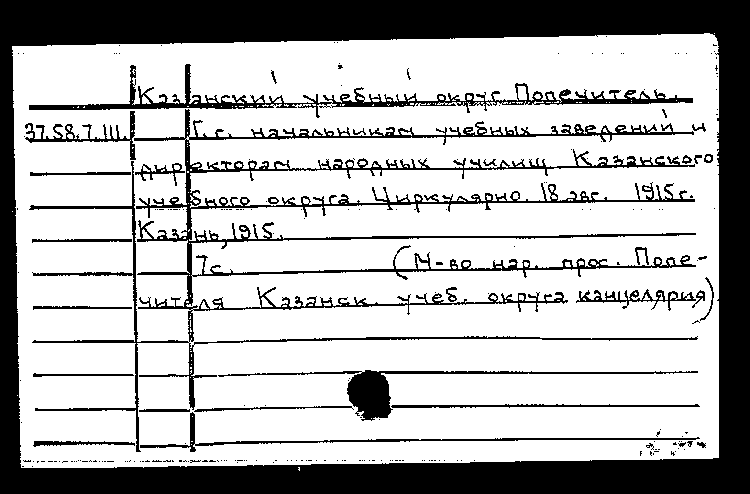 Казанский учебный округ. Попечитель.
37.58.7.III. Г.г. начальникам учебных заведений и
директорам народных училищ Казанского
учебного округа. Циркулярно. 18 авг. 1915 г.
Казань, 1915.
7с. (М-во нар. прос. Попе-
чителя Казанск. учеб. округа канцелярия)